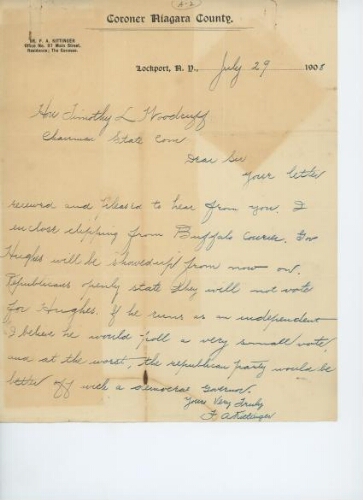 Coroner Niagara County.
DR. F. A. KITTINGER
Office No. 57 Main Street,
Residence: The Genesee.
Lockport, N. Y., July 29 1908
Hon Timothy L Woodruff
Chairman State Com
Dear Sir
Your letter
received and pleased to hear from you. I
inclose clipping from Buffalo Courier. Gov
Hughes will be showed up from now on.
Republicans openly state they will not vote
for Hughes. If he runs as an independent
I believe he would poll a very small vote,
and at the worst, the republican party would be
better off with a democrat Governor.
Yours Very Truly
F. A. Kittinger